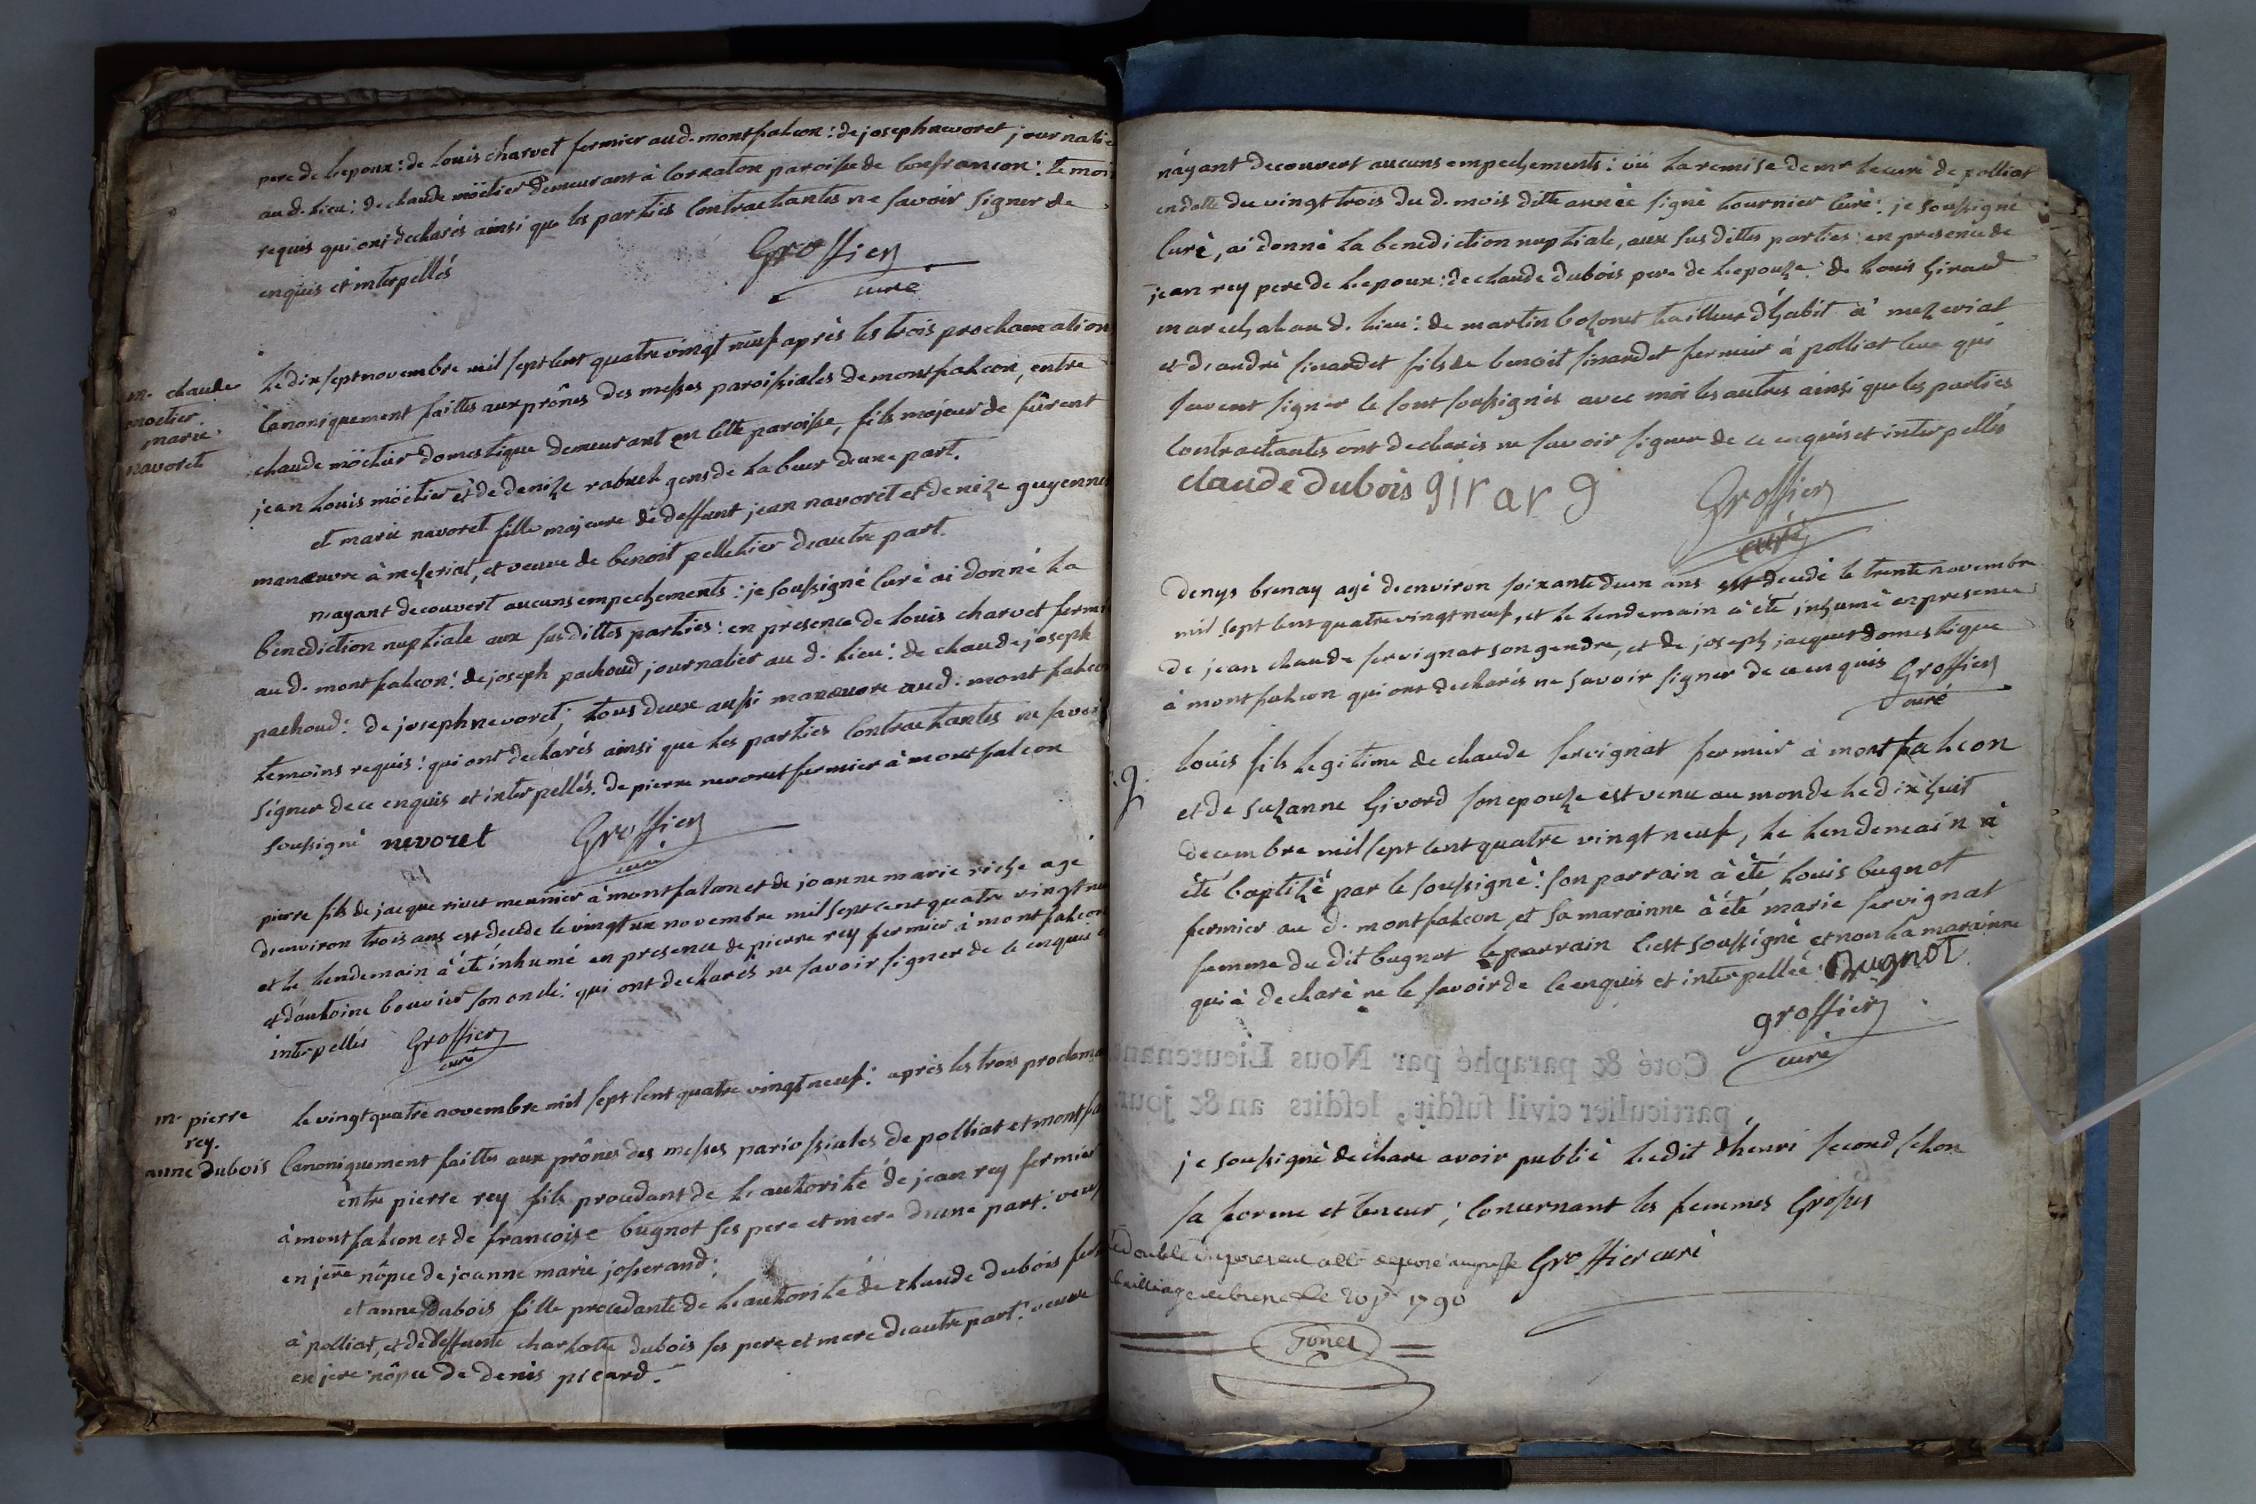 pere de l'epoux: de louis charvet fermier au d. montfalcon: de joseph nevoret journalie
au d. lieu: de claude möctier demeurant à Cornaton paroisse de Confrançon: temoi
requis qui ont declarés ainsi que les parties Contractantes ne savoir signer de
enquis et interpellés
Groffier
curé
m. claude
moctier
marie
navoret
le dix sept novembre mil sept cent quatre vingt neuf après les trois proclamation
Canoniquement faittes aux prônes des messes paroissiales de montfalcon, entre
claude möctier domestique demeurant en cette paroisse, fils majeur de fûrent
jean louis möctier et de denize rabuel gens de labeur d'une part.
et marie navoret fille majeure de deffunt jean navoret et denize guyennet
manœuvre à mezeriat, et veuve de benoit pelletier d'autre part.
n'ayant decouvert aucuns empechements: je soussigné Curé ai donné la
benediction nuptiale aux susdittes parties: en presence de louis charvet fermi
au d. montfalcon: de joseph pachoud journalier au d. lieu: de claude joseph
pachoud: de joseph nevoret; tous deux aussi manœuvre au d. montfalcon
temoins requis: qui ont declarés ainsi que les parties Contractantes ne savoi
signer de ce enquis et interpellés. de pierre nevoret fermier à montfalcon
soussigné nevoret Groffier
curé
pierre fils de jacque rivet meunier à montfalcon et de joanne marie riche agé
d'environ trois ans est decede le vingt un novembre mil sept cent quatre vingt neu
et le lendemain à été inhumé en presence de pierre rey fermier à montfalcon
et d'antoine bouvier son oncle: qui ont declarés ne savoir signer de ce enquis e
interpellés Groffier
curé
m. pierre
rey.
anne dubois
le vingt quatre novembre mil sept cent quatre vingt neuf: après les trois proclama
Canoniquement faittes aux prônes des messes pariossiales de polliat et montfa
entre pierre rey fils procedant de l'authorité de jean rey fermier
à montfalcon et de françoise bugnot ses pere et mere d'une part: veuf
en jere nôpce de joanne marie josserand;
et anne dubois fille procedante de l'authorité de claude dubois fer
à polliat, et de deffunte charlotte dubois ses pere et mere d'autre part: veuve
en jere nôpce de denis picard.
n'ayant decouvert aucuns empechements: vû la remise de mr le curé de polliat
en datte du vingt trois du d. mois ditte année signé tournier Curé: je soussigné
Curé, ai donné la benediction nuptiale, aux susdittes parties: en presence de
jean rey pere de l'epoux: de claude dubois pere de l'epouze: de louis Girard
marechal au d. lieu: de martin bozonet tailleur d'habit à mezeriat
et d'andré sirardet fils de benoit sirardet fermier à polliat ceux qui
savent signer le sont soussignés avec moi les autres ainsi que les parties
Contractantes ont declarés ne savoir signer de ce enquis et interpellés
claude dubois girard Groffier
curé
denys brenay agé d'environ soixante deux ans est decedé le trente novembre
mil sept cent quatre vingt neuf, et le lendemain à été inhumé en presence
de jean claude servignat son gendre, et de joseph jacquet domestique
à montfalcon qui ont declarés ne savoir signer de ce enquis Groffier
curé
louis fils legitime de claude servignat fermier à montfalcon
et de suzanne Givord son epouze est venu au monde le dix huit
decembre mil sept cent quatre vingt neuf, le lendemain à
été baptizé par le soussigné: son parrain à été louis bugnot
fermier au d. montfalcon et sa marainne à été marie servignat
femme du dit bugnot le parrain c'est soussigné et non la marainne
qui à declaré ne le savoir de ce enquis et interpellée: Bugnot
groffier
curé
Coté & paraphé par Nous Lieutenant
particulier civil susdit, lesdits an & jour
je soussigné declare avoir publié l'edit d'henri second selon
sa forme et teneur; Concernant les femmes Grosses
Groffier curé
le 20 jr 1790